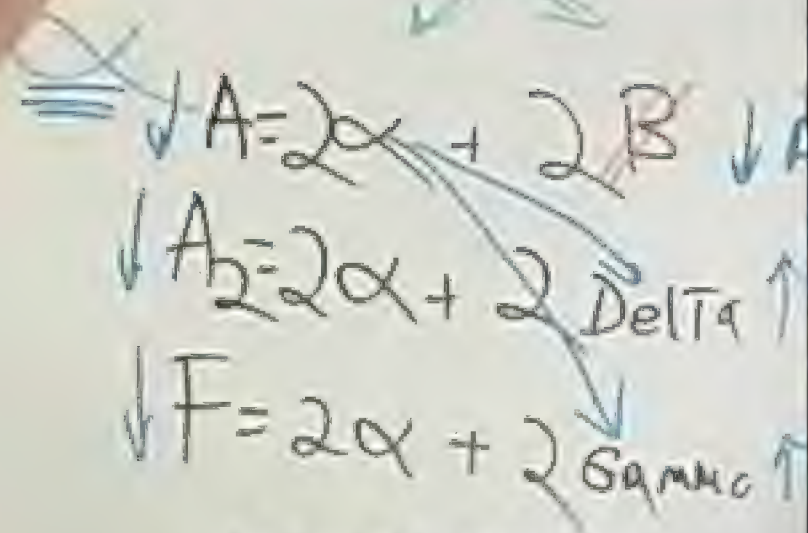 α ↓ A = 2α + 2B ↓ A
↓ A2 = 2α + 2 Delta ↑
↓ F = 2α + 2 Gamma ↑